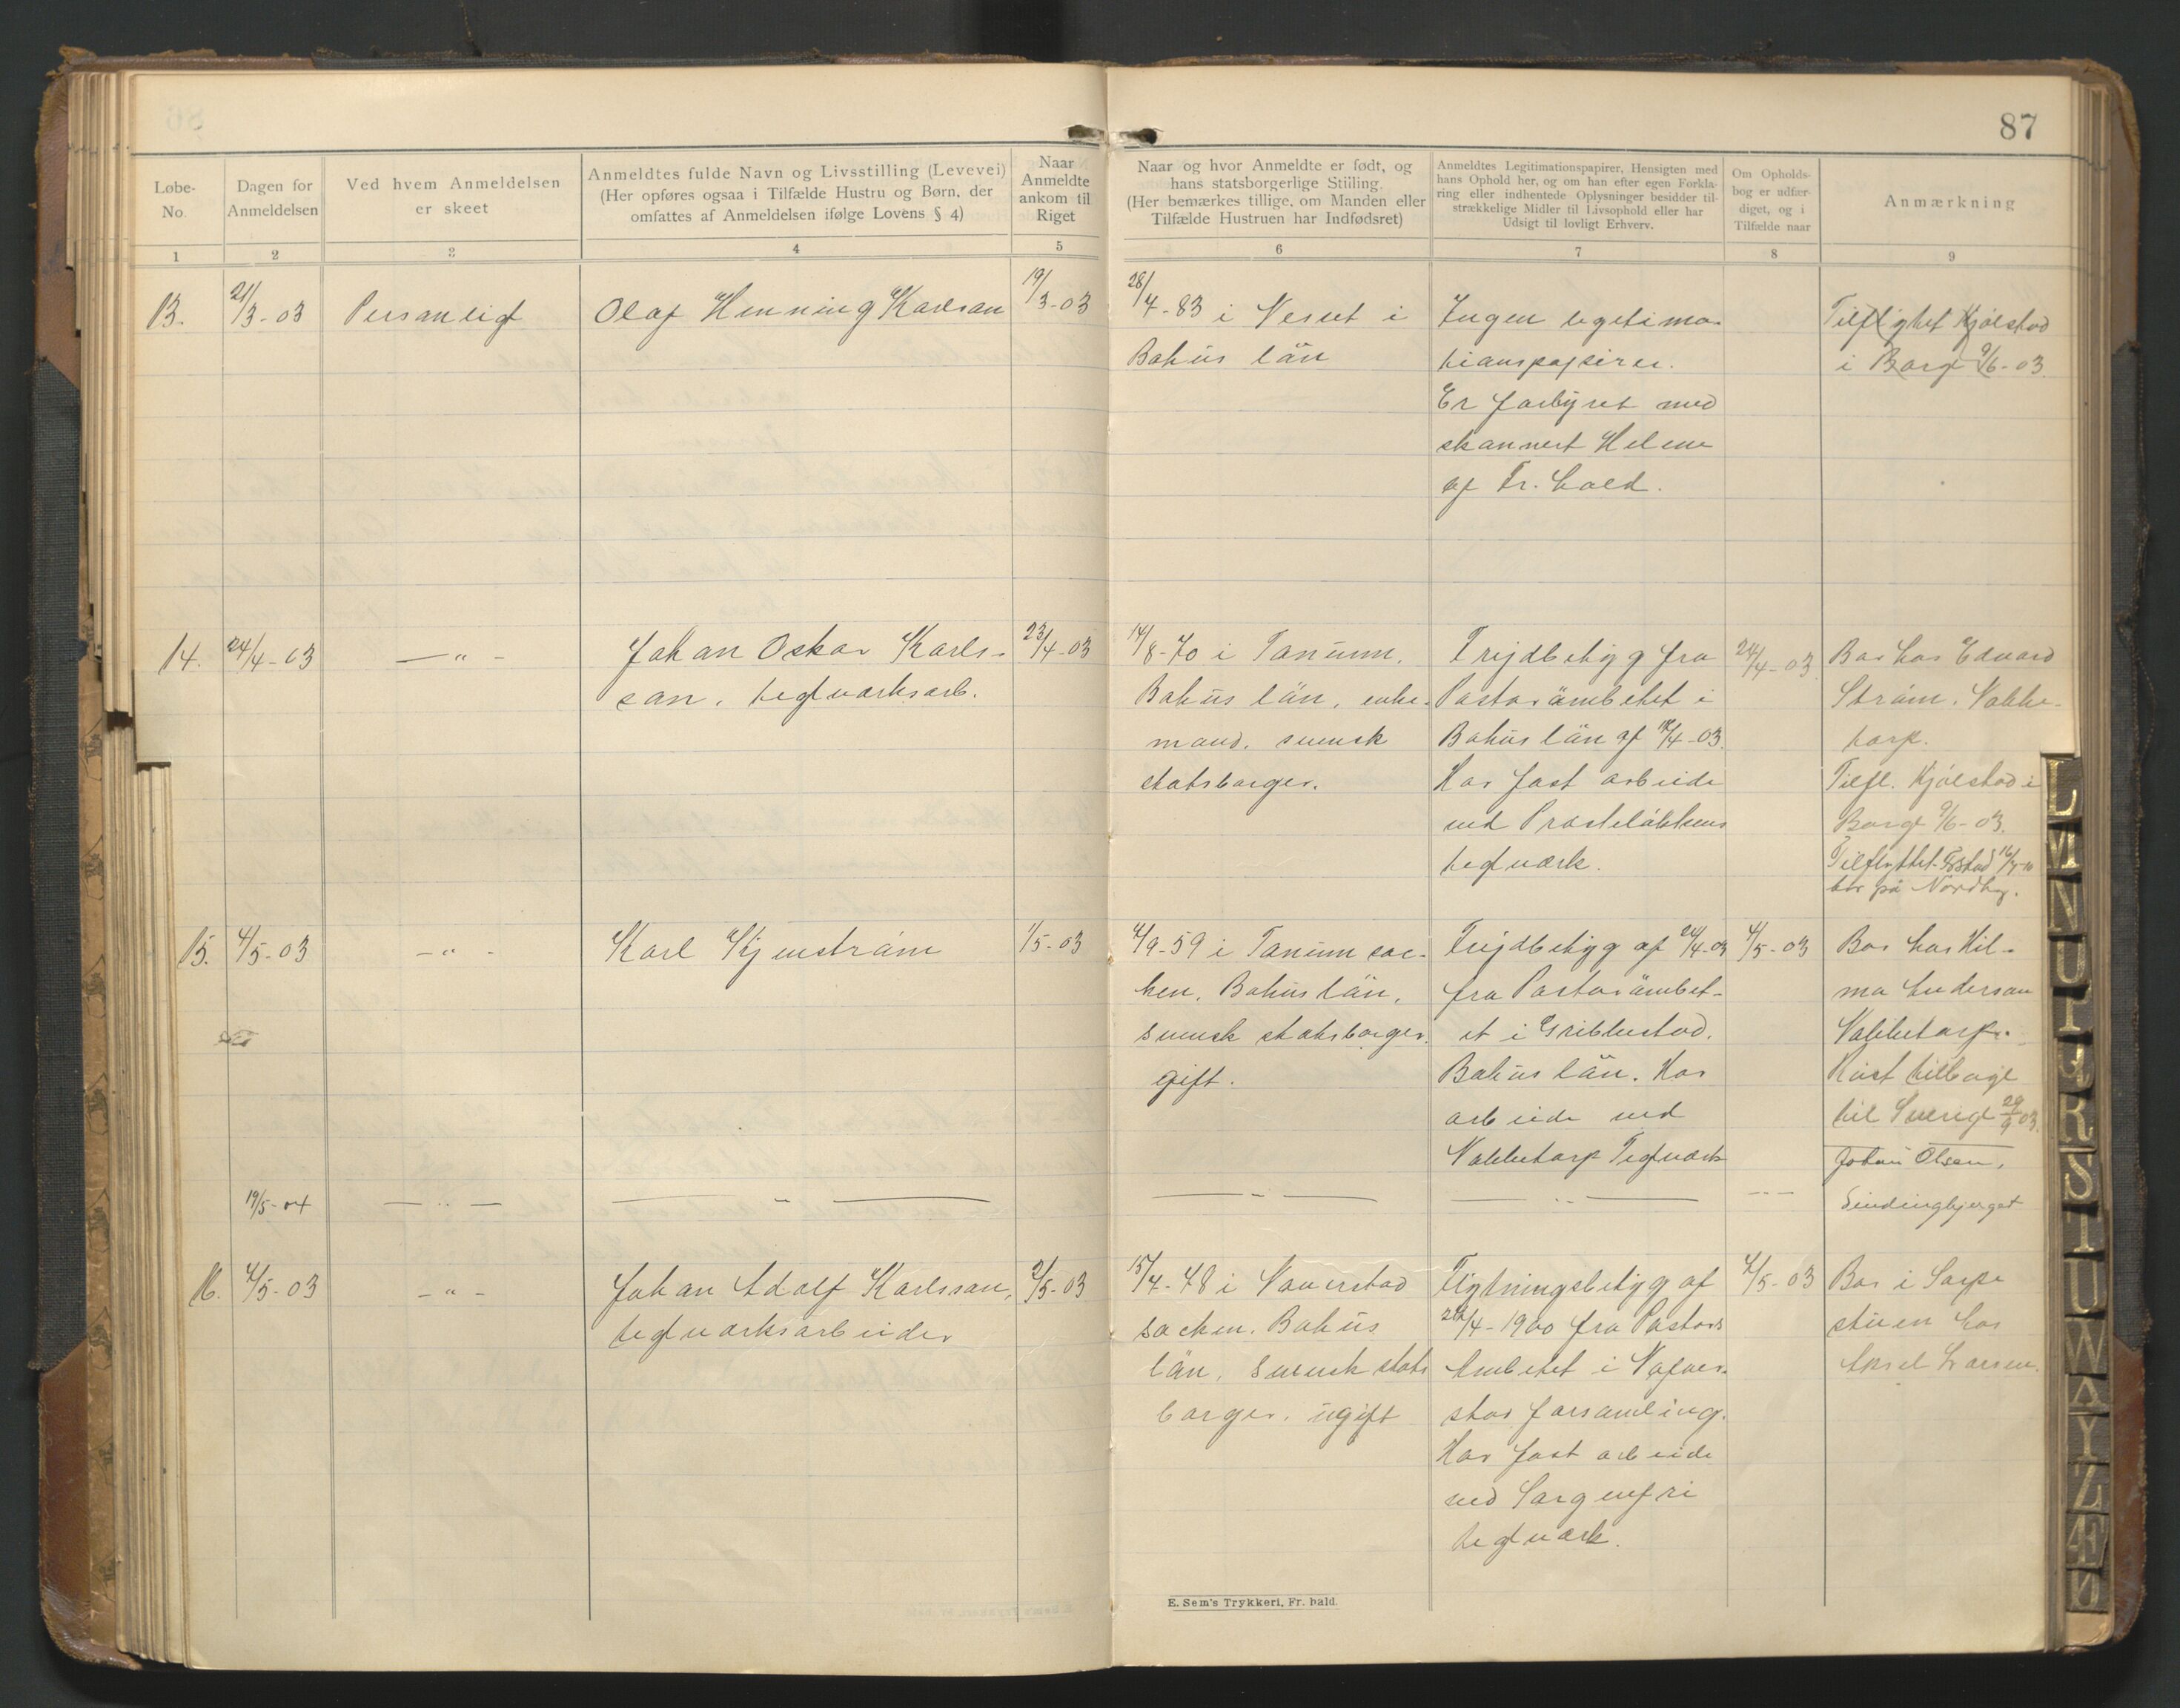 87
Løbe-
No.
Dagen for
Anmeldelsen
Ved hvem Anmeldelsen
er skeet
Anmeldtes fulde Navn og Livsstilling (Levevei)
(Her opføres ogsaa i Tilfælde Hustru og Børn, der
omfattes af Anmeldelsen ifølge Lovens § 4)
Naar
Anmeldte
ankom til
Riget
Naar og hvor Anmeldte er født, og
hans statsborgerlige Stiiling.
(Her bemærkes tillige, om Manden eller
Tilfælde Hustruen har Indfødsret)
Anmeldtes Legitimationspapirer, Hensigten med
hans Ophold her, og om han efter egen Forkla-
ring eller indhentede Oplysninger besidder til-
strækkelige Midler til Livsophold eller har
Udsigt til lovligt Erhverv.
Om Opholds-
bog er udfær-
diget, og i
Tilfælde naar
Anmærkning
1
2
3
4
5
6
7
8
9
13.
21/3-03
Personligt
Olaf Henning Karlson
19/3-03
28/4-83 i Nesset i
Bohus län
Ingen legitima-
tionspapirer.
Er forhyret med
skonnert Helene
af Fr. hald.
Tilflyttet Kjølstad
i Borge 9/6-03.
14.
24/4-03
— " -
Johan Oskar Karls-
son, teglværksarb.
23/4-03
14/8-70 i Tanum,
Bohus län, enke-
mand, svensk
statsborger.
Frejdbetyg fra
Pastorämbetet i
Bohus län af 18/4-03.
Har fast arbeide
ved Presteløkkens
teglværk.
24/4-03
Bor hos Edvard
Strøm, Nabbe-
torp.
Tilfl. Kjølstad i
Borge 9/6-03.
bor på Nordby.
15.
4/5-03
— " -
Karl Kjenstrøm
1/5-03
4/9-59 i Tanum soc-
ken, Bohus län,
svensk statsborger,
gift.
Frejdbetyg af 24/4-03
fra Pastorämbet-
et i Grebbestad,
Bohus län. Har
arbeide ved
Nabbetorp Teglværk
4/5-03
Bor hos Hil-
ma Anderson
Nabbetorp.
Reist tilbage
til Sverige 29/9 03.
19/5-04
— " —
— " —
— " —
— " —
- - -
Johan Olsen,
Sindingbjerget
16.
4/5-03
- " -
Johan Adolf Karlsson,
teglværksarbeider
2/5-03
15/4-48 i Naverstad
socken, Bohus
län, svensk stats
borger, ugift
Flytningsbetyg af
24/4-1900 fra Pastors
Ambetet i Nafver-
stad forsamling.
Har fast arbeide
ved Sorgenfri
teglværk.
4/5-03
Bor i Sorpe
stuen hos
Aksel Larsen.
E. Sem's Trykkeri, Fr. hald.
L
M
N
O
P
Q
R
S
T
U
W
A
Y
Z
Æ
Ø